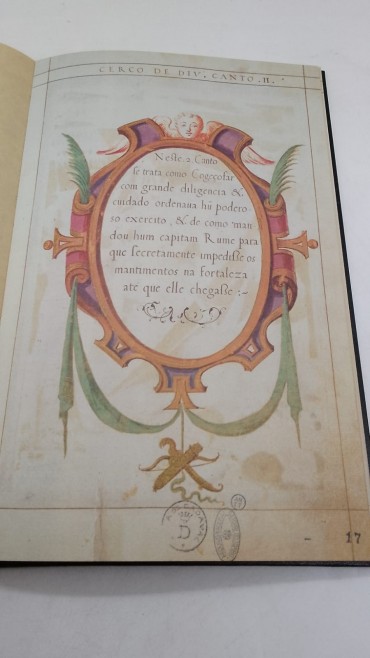 CERCO DE DIV, CANTO .II.
Neste 2 Canto
se trata como Cogeçofar
com grande diligencia &
cuidado ordenaua hũ podero-
so exercito, & de como man
dou hum capitam Rume para
que secretamente impediße os
mantimentos na fortaleza
ate que elle chegaße :~
17